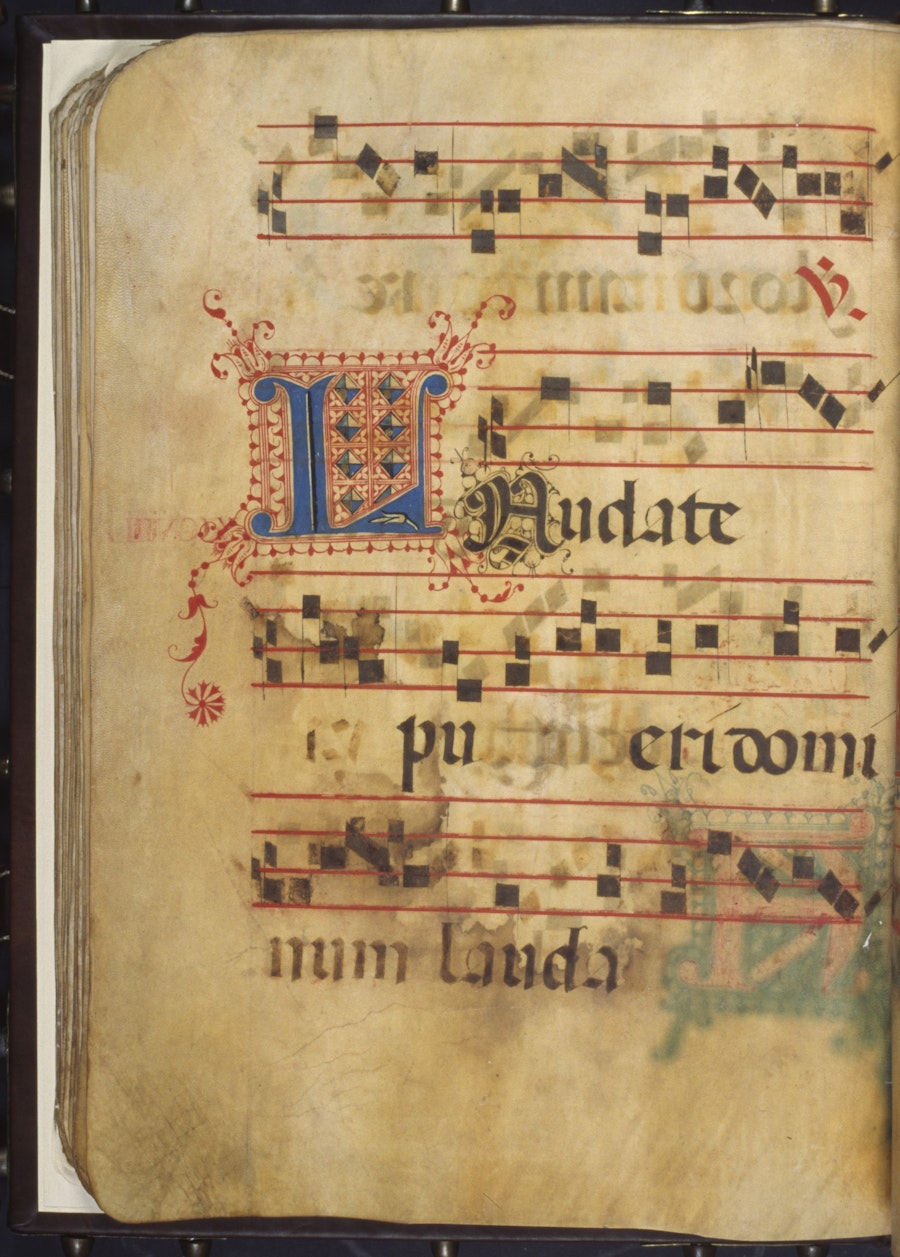 ℣.
LAudate
pu eri domi
num lauda